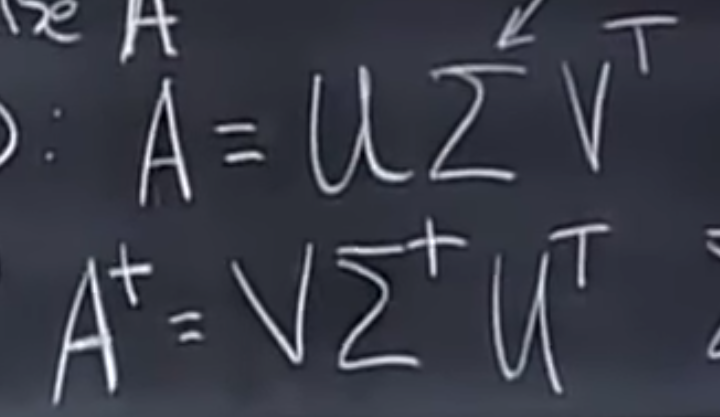 A
: A = U Σ Vᵀ
A⁺ = V Σ⁺ Uᵀ